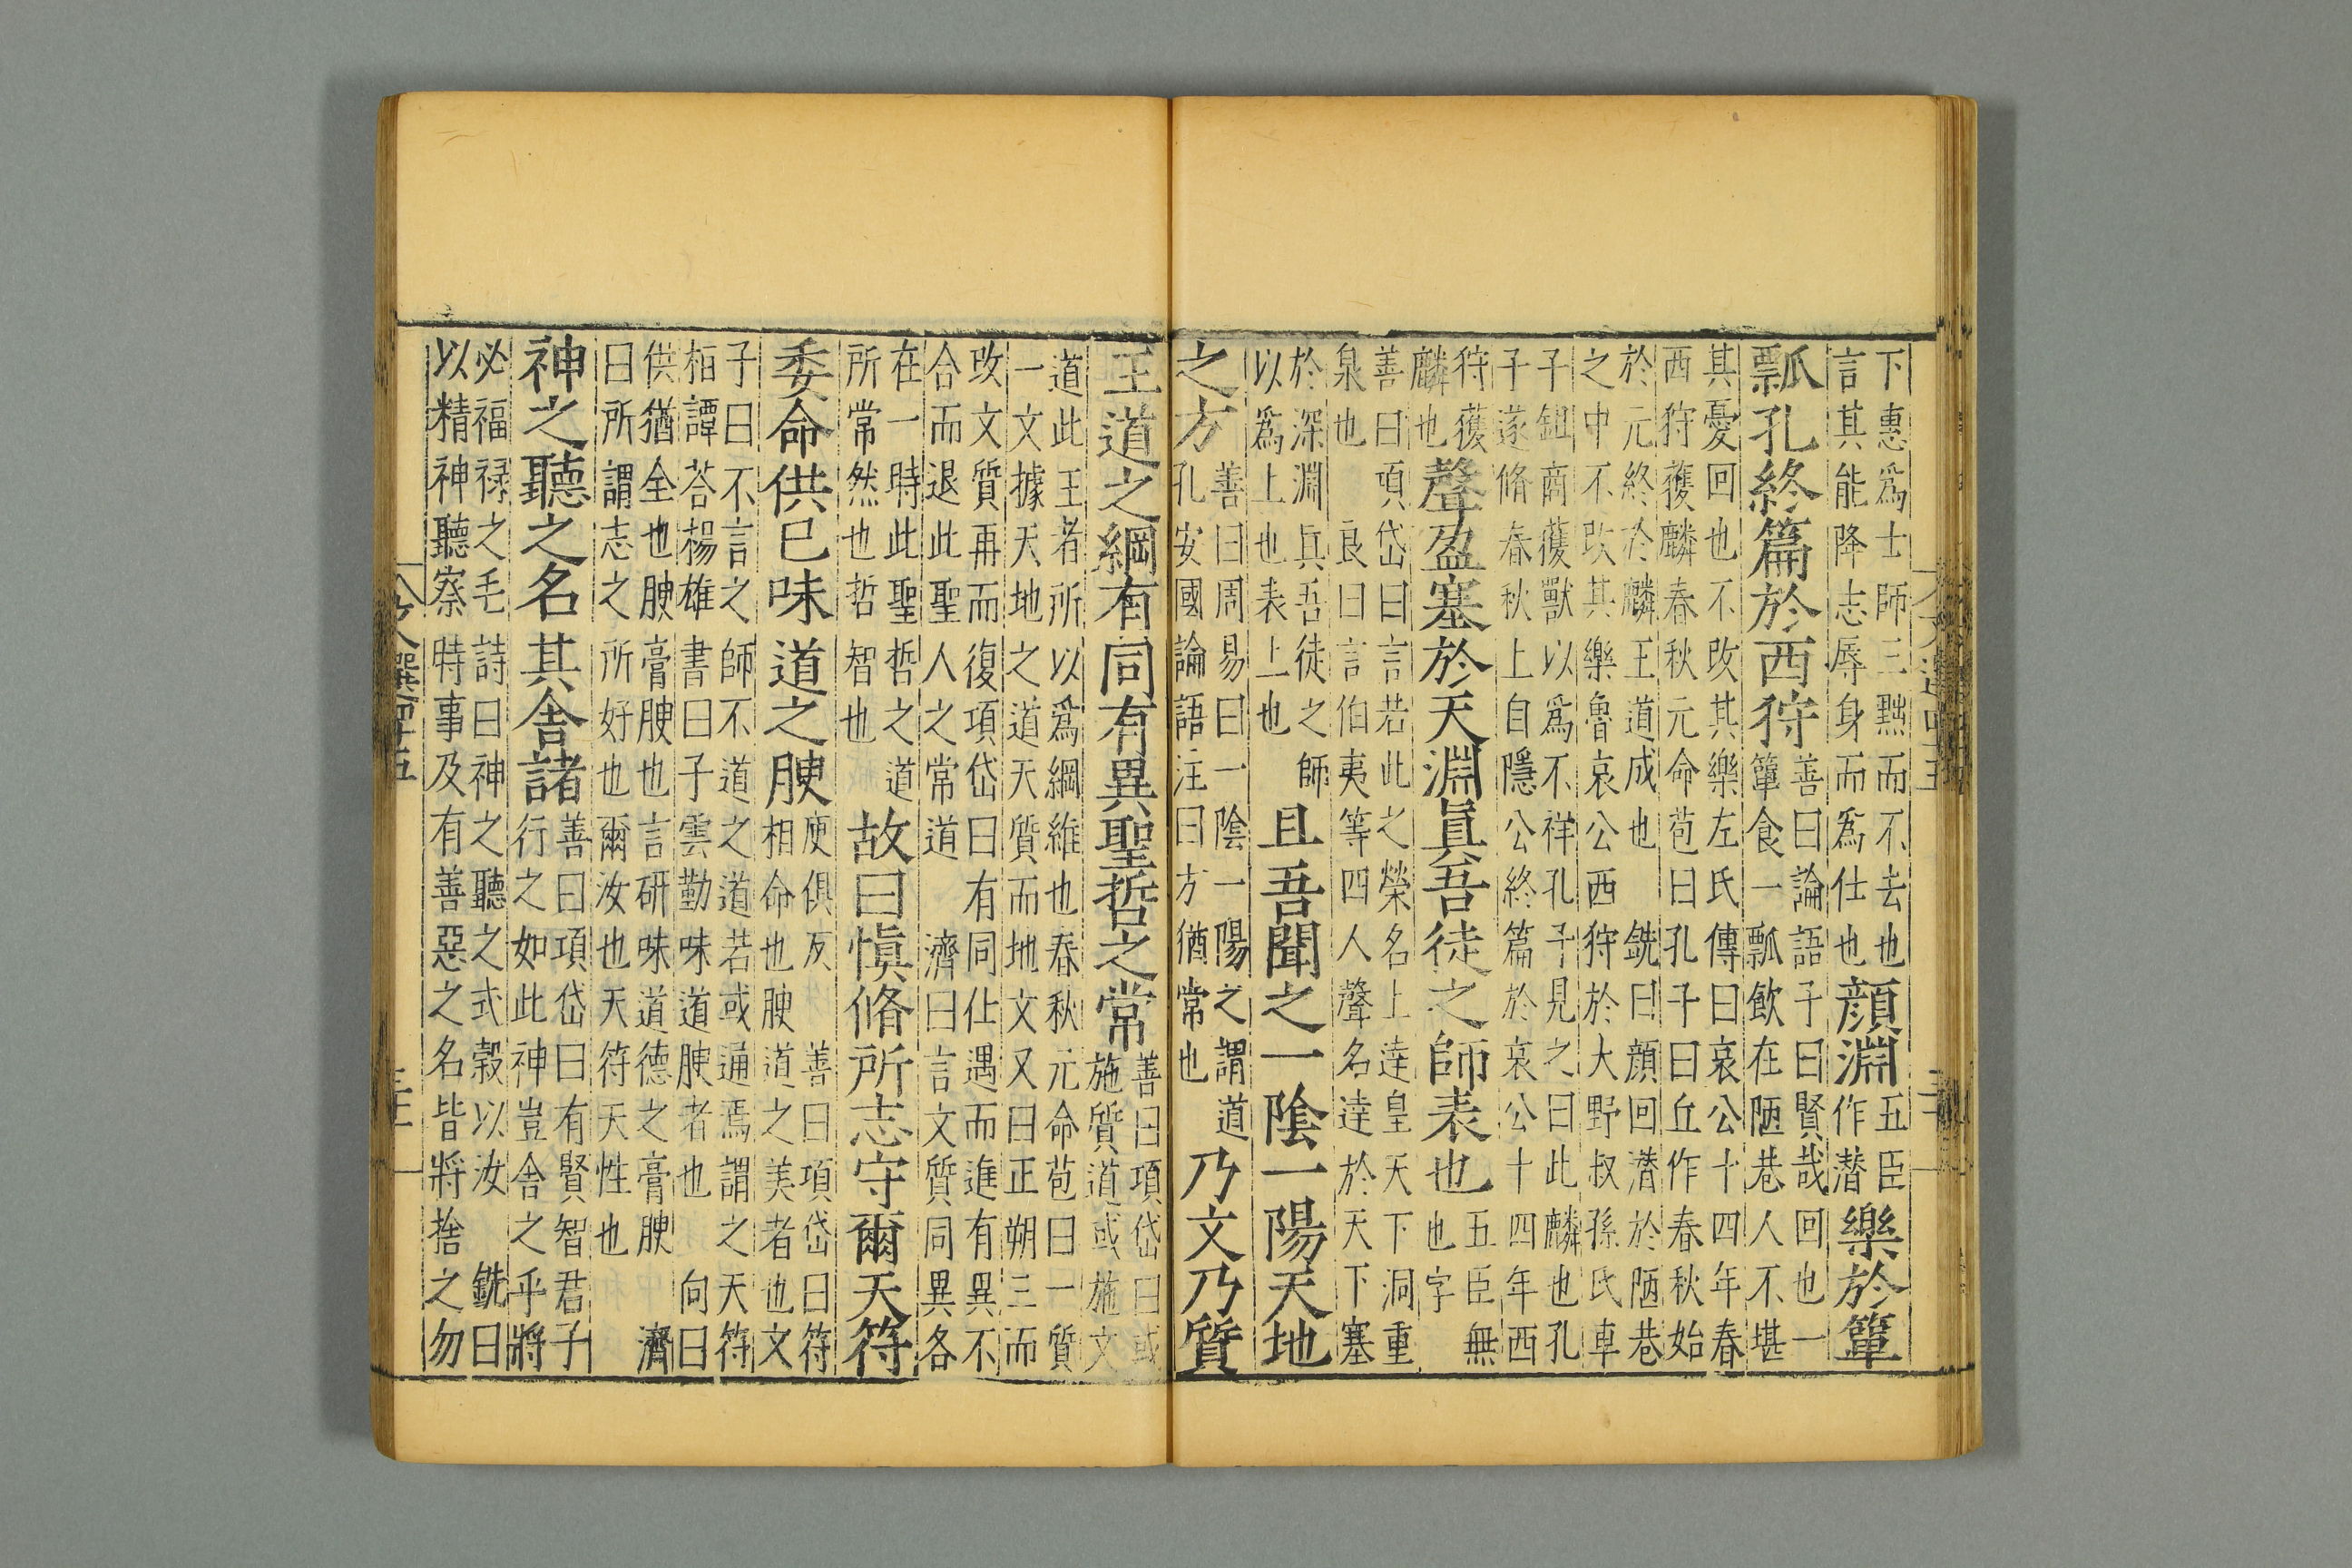 下惠爲士師三黜而不去也
言其能降志辱身而爲仕也
顏淵
五臣
作潛
樂於簞
瓢孔終篇於西狩
善曰論語子曰賢哉回也一
簞食一瓢飲在陋巷人不堪
其憂回也不改其樂左氏傳曰哀公十四年春
西狩獲麟春秋元命苞曰孔子曰丘作春秋始
於元終於麟王道成也 銑曰顏回潛於陋巷
之中不改其樂魯哀公西狩於大野叔孫氏車
子鉏商獲獸以爲不祥孔子見之曰此麟也孔
子遂脩春秋上自隱公終篇於哀公十四年西
狩獲
麟也
聲盈塞於天淵眞吾徒之師表也
五臣無
也字
善曰項岱曰言若此之榮名上達皇天下洞重
泉也 良曰言伯夷等四人聲名達於天下塞
於深淵眞吾徒之師
以爲上也表上也
且吾聞之一陰一陽天地
之方
善曰周易曰一陰一陽之謂道
孔安國論語注曰方猶常也
乃文乃質
王道之綱有同有異聖哲之常
善曰項岱曰或
施質道或施文
道此王者所以爲綱維也春秋元命苞曰一質
一文據天地之道天質而地文又曰正朔三而
改文質再而復項岱曰有同仕遇而進有異不
合而退此聖人之常道 濟曰言文質同異各
在一時此聖哲之道
所常然也哲智也
故曰愼脩所志守爾天符
委命供已味道之腴
庾俱反 善曰項岱曰符
相命也腴道之美者也文
子曰不言之師不道之道若或通焉謂之天符
桓譚荅楊雄書曰子雲勤味道腴者也 向曰
供猶全也腴膏腴也言研味道德之膏腴 濟
曰所謂志之所好也爾汝也天符天性也
神之聽之名其舍諸
善曰項岱曰有賢智君子
行之如此神豈舍之乎將
必福祿之毛詩曰神之聽之式榖以汝 銑曰
以精神聽察時事及有善惡之名皆將捨之勿